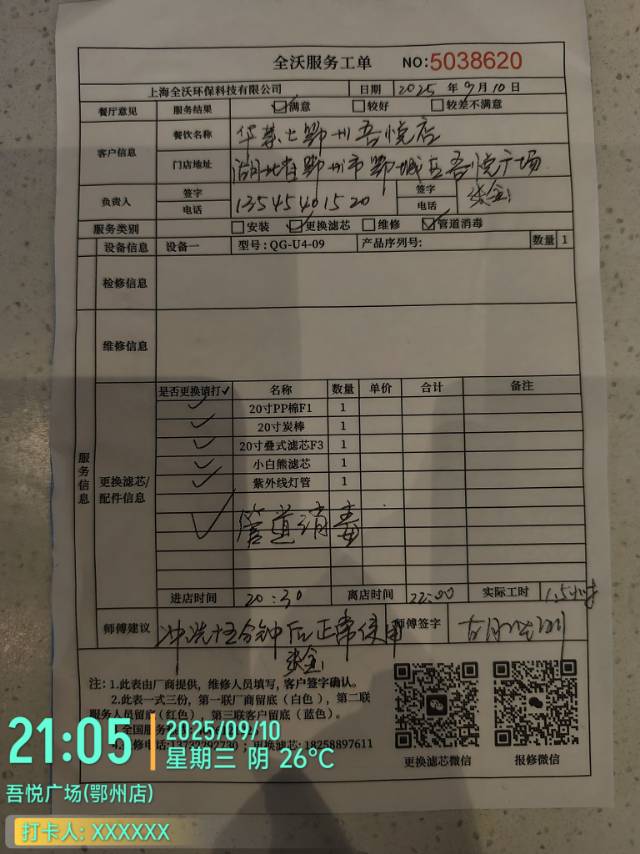 全沃服务工单 NO:5038620
上海全沃环保科技有限公司 日期 2025 年 9 月 10 日
餐厅意见 服务结果 ☑满意 □较好 □较差不满意
客户信息 餐饮名称 华莱士鄂州吾悦店
门店地址 湖北省鄂州市鄂城区吾悦广场
负责人 签字 签字 张金
电话 13545401520 电话
服务类别 □安装 ☑更换滤芯 □维修 ☑管道消毒
设备信息 设备一 型号:QG-U4-09 产品序列号: 数量 1
检修信息
维修信息
服务信息
更换滤芯/配件信息
是否更换请打✓ 名称 数量 单价 合计 备注
✓ 20寸PP棉F1 1
✓ 20寸炭棒 1
✓ 20寸叠式滤芯F3 1
✓ 小白熊滤芯 1
✓ 紫外线灯管 1
✓ 管道消毒
进店时间 20:30 离店时间 22:00 实际工时 1.5小时
师傅建议 冲洗十五分钟后正常使用 师傅签字
张金
注:1.此表由厂商提供,维修人员填写,客户签字确认。
2.此表一式三份,第一联厂商留底(白色),第二联
服务人员留底(红色),第三联客户留底(蓝色)。
全国服务
修电话:13732292730;更换滤芯:18258897611
更换滤芯微信 报修微信
21:05 2025/09/10
星期三 阴 26°C
吾悦广场(鄂州店)
打卡人: XXXXXX